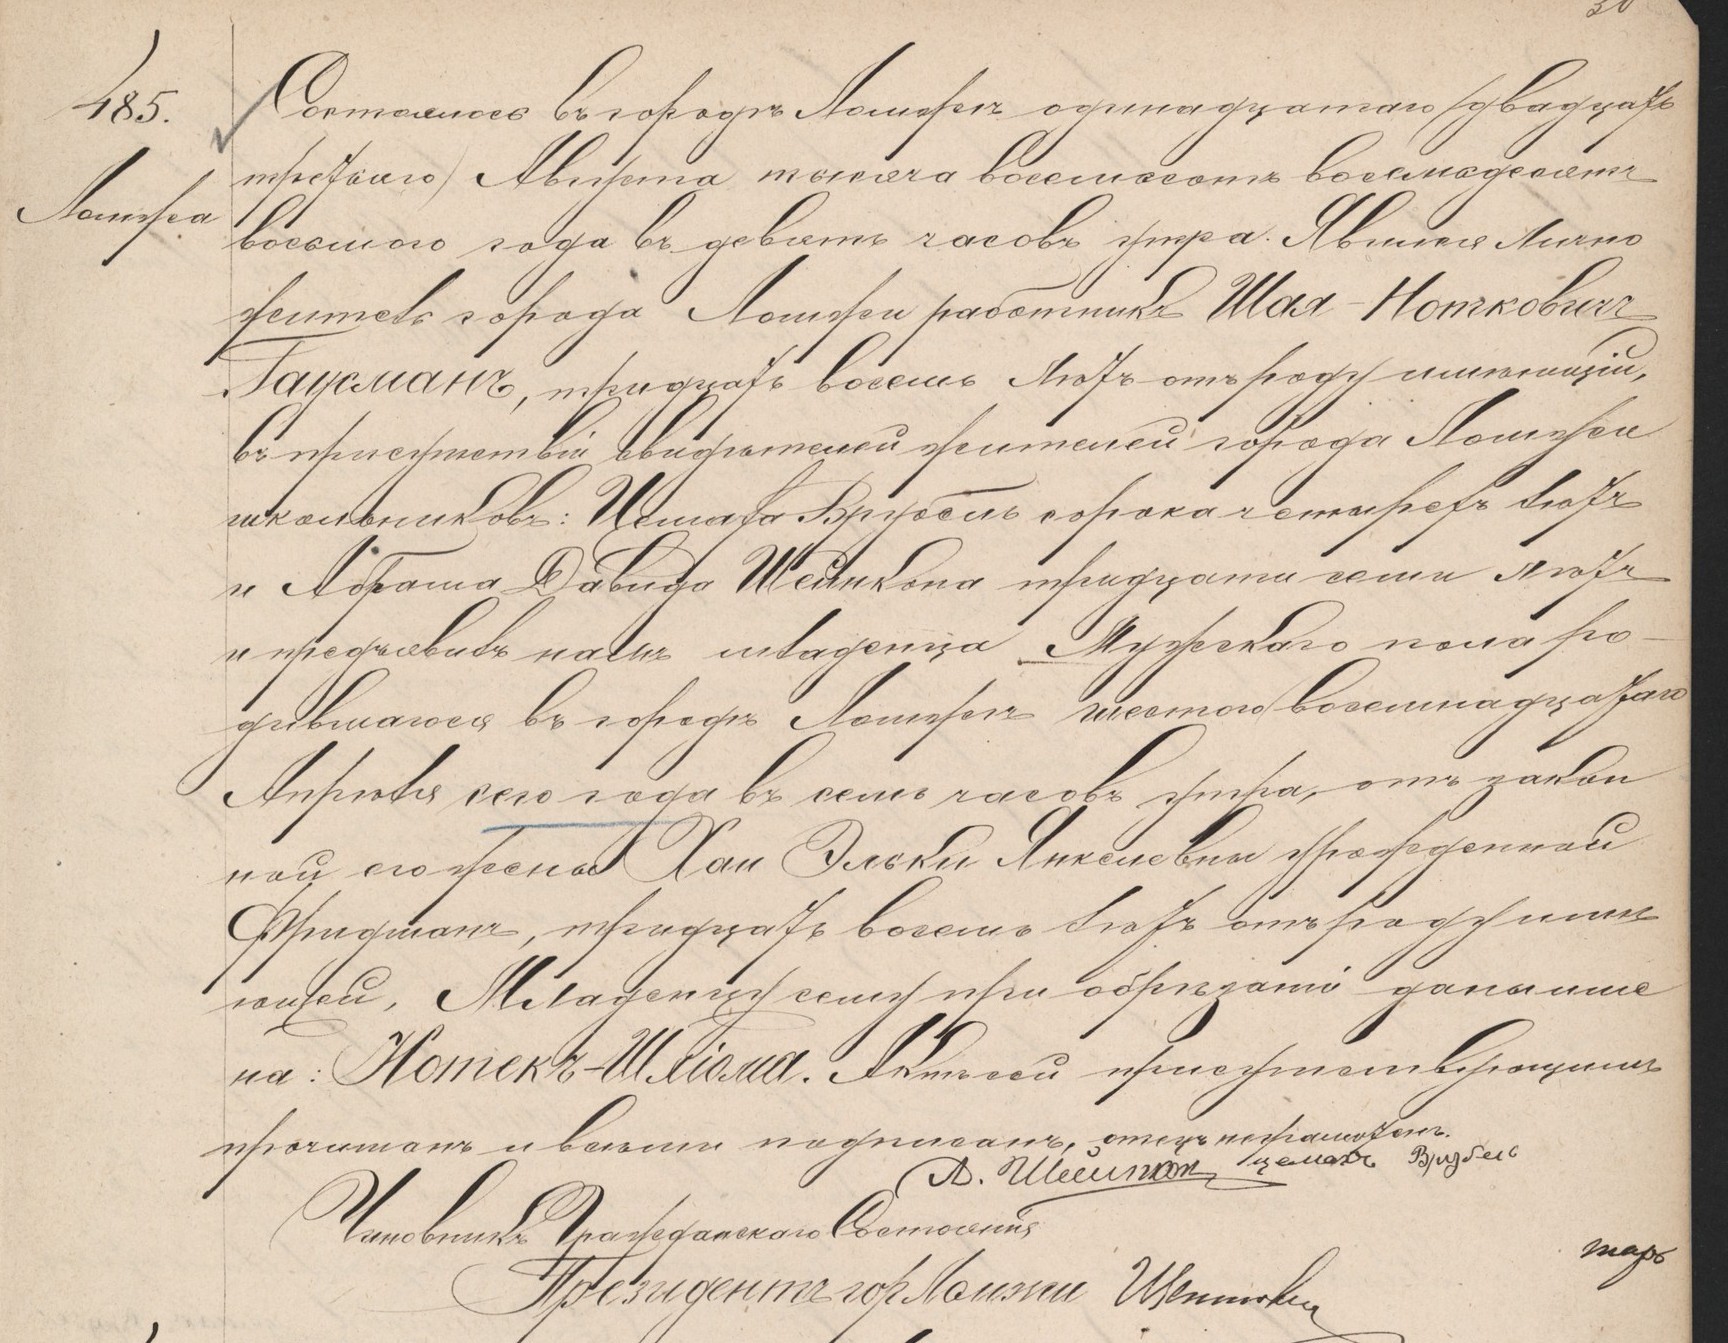 30
485.
Ломжа
Состоялось въ городѣ Ломжѣ одинадцатаго (двадцать
третьяго) Августа тысяча восемьсотъ восемьдесятъ
восьмого года въ девять часовъ утра. Явился лично
житель города Ломжи работникъ Шая-Нотковичъ
Гаусманъ, тридцать восемь лѣтъ отъ роду имѣющій,
въ присутствіи свидѣтелей жителей города Ломжи
школьниковъ: Цемаха Врубель сорока четырехъ лѣтъ
и Абрама Давида Шейнкопа тридцати семи лѣтъ
и предъявилъ намъ младенца Мужскаго пола ро-
дившагося въ городѣ Ломжѣ шестого/восемнадцатаго
Апрѣля сего года въ семь часовъ утра, отъ закон
ной его жены Хаи Эльки Янкелевны урожденной
Фридманъ, тридцать восемь лѣтъ отъ роду имѣ
ющей, Младенцу сему при обрѣзаніи дано име
на: Нотекъ-Шліома. Актъ сей присутствующимъ
прочитанъ и всѣми подписанъ, отецъ неграмотенъ.
А. Шейнкоп Цемахъ Врубель
Чиновникъ Гражданскаго Состоянія
Президентъ гор Ломжи